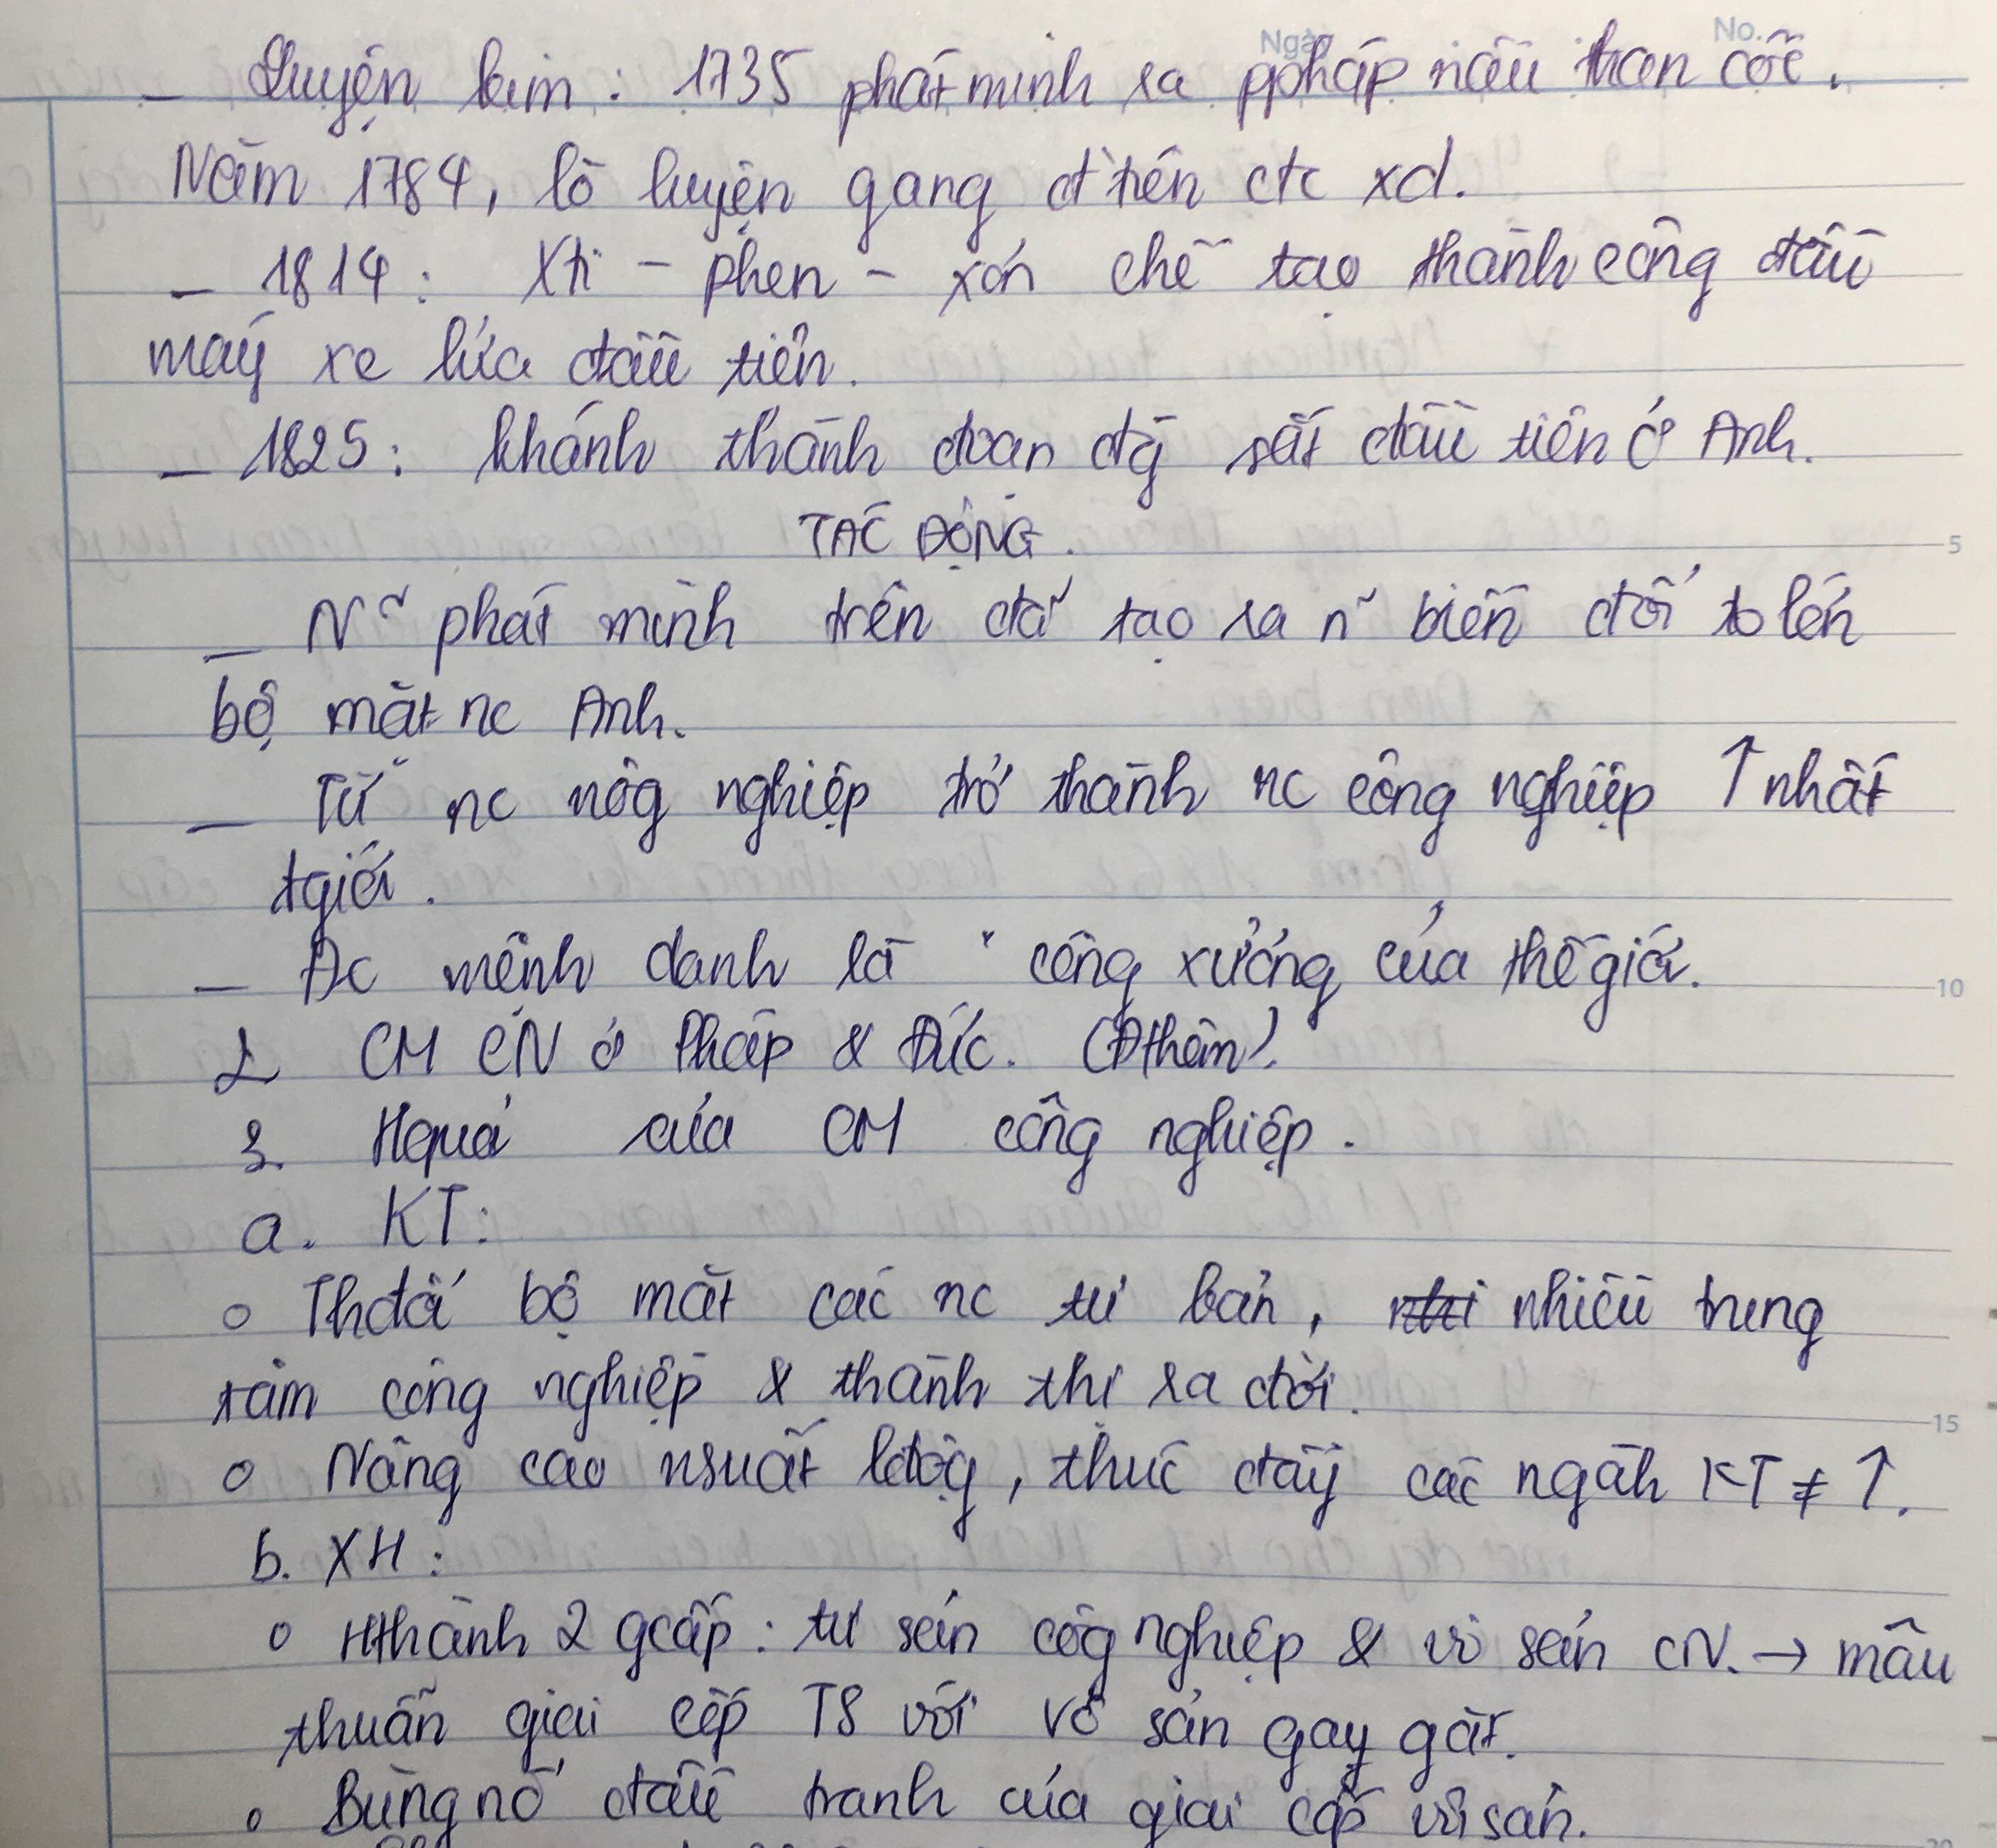 Ngày No.
- Luyện kim : 1735 phát minh ra ppháp nấu than cốc.
Năm 1784, lò luyện gang đ tiên đc xd.
- 1814 : Xti - phen - xơn chế tạo thành công đầu
máy xe lửa đầu tiên.
- 1825 : khánh thành đoạn đg sắt đầu tiên ở Anh.
TÁC ĐỘNG.
5
- N~ phát minh trên đã tạo ra n~ biến đổi to lớn
bộ mặt nc Anh.
- Từ nc nôg nghiệp trở thành nc công nghiệp ↑ nhất
tgiới.
- Đc mệnh danh là " công xưởng của thế giới.
10
2 CM CN ở Pháp & Đức. (Đthêm).
3. Hquả của CM công nghiệp.
a. KT:
o Thđổi bộ mặt các nc tư bản, nhiều trung
tâm công nghiệp & thành thị ra đời.
15
o Nâng cao nsuất lđộg, thúc đẩy các ngàh KT ≠ ↑.
b. XH :
o Hthành 2 gcấp : tư sản côg nghiệp & vô sản CN. → mâu
thuẫn giai cấp TS với vô sản gay gắt.
o Bùng nổ đấu tranh của giai cấp vô sản.